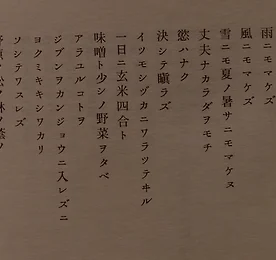 雨ニモマケズ
風ニモマケズ
雪ニモ夏ノ暑サニモマケヌ
丈夫ナカラダヲモチ
慾ハナク
決シテ瞋ラズ
イツモシヅカニワラッテヰル
一日ニ玄米四合ト
味噌ト少シノ野菜ヲタベ
アラユルコトヲ
ジブンヲカンジョウニ入レズニ
ヨクミキキシワカリ
ソシテワスレズ